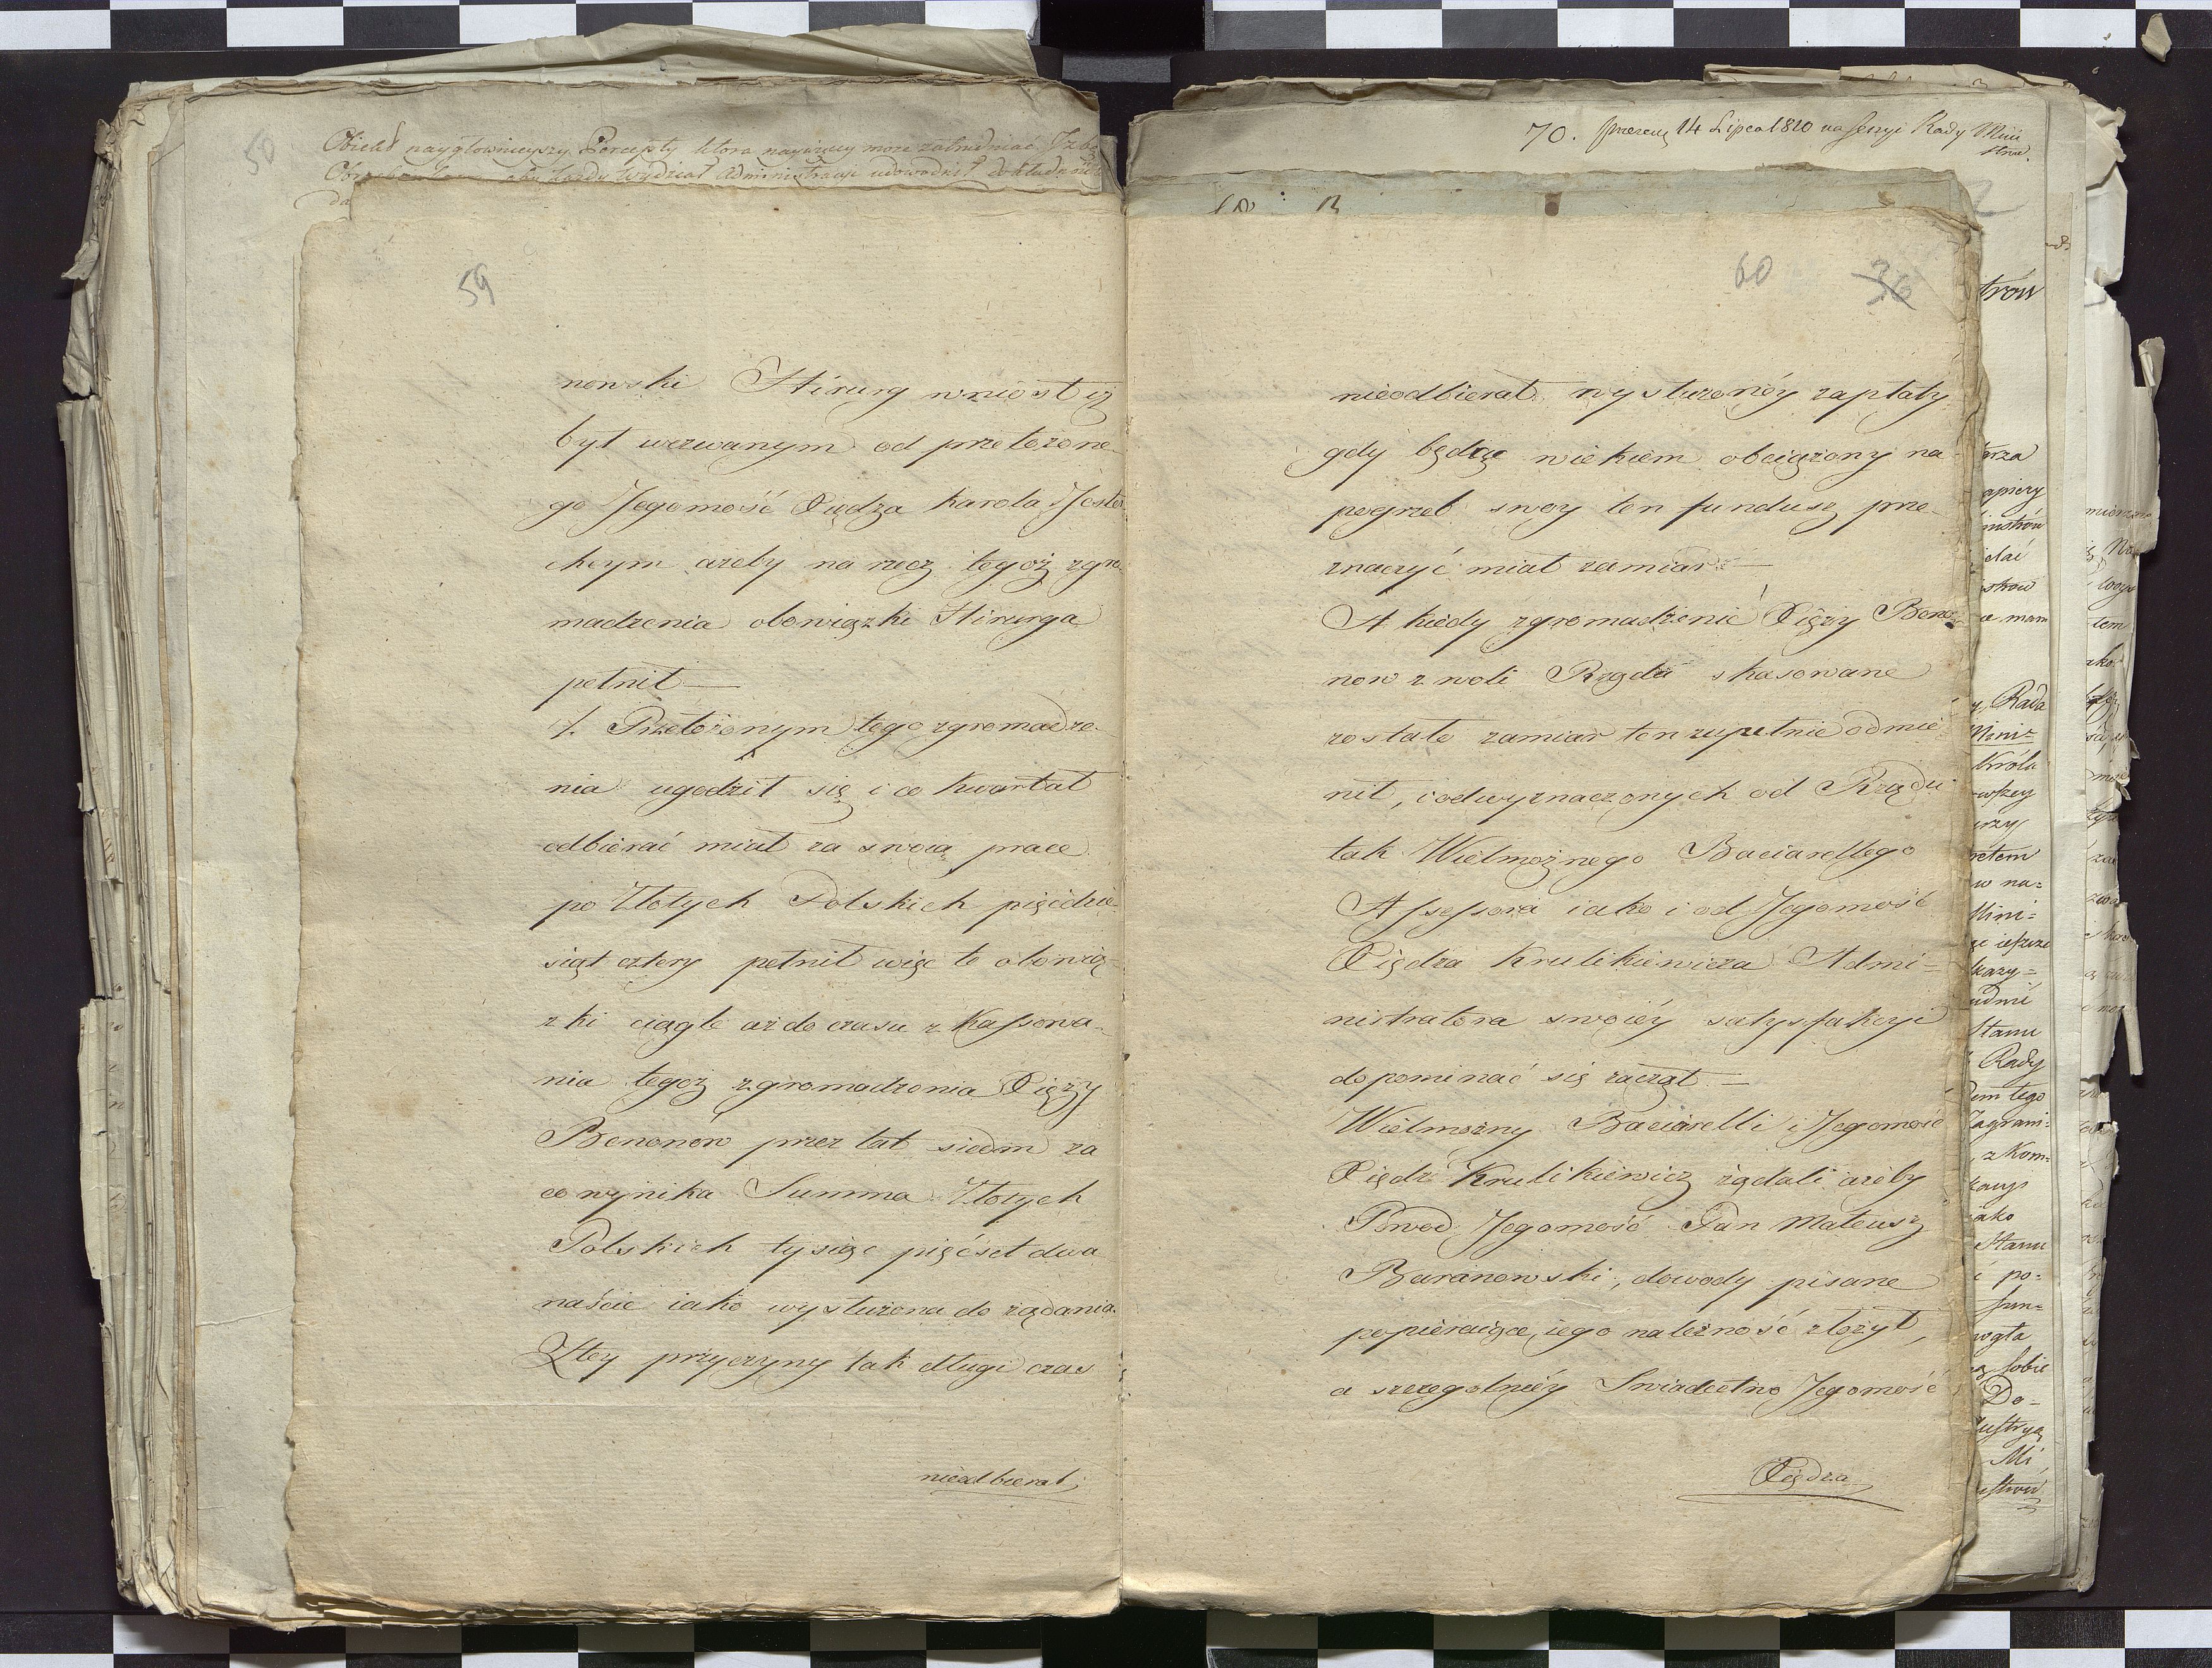 50
Obiekt naygłownieyszy Percepty ktora naywięcy może zatrudniać Izbę
aby każdy Wydział Administracyi udowodnił dokładność
da
59
nowski Hirurg wniosł iż
był wezwanym od przełożone-
go Jegomość Xiędza Karola Jeste-
cheym ażeby na rzecz tegoż zgro-
madzenia obowiązki Hirurga
pełnił —
Z Przełożonym tego zgromadze-
nia ugodził się i co kwartał
odbierać miał za swoią pracę
po Złotych Polskich pięćdzie-
siąt cztery pełnił więc te obowią-
zki ciągle aż do czasu z kassowa-
nia tegoż zgromadzenia Xięży
Benonow przez lat siedm za
co wynika Summa Złotych
Polskich tysiąc pięćset dwa
naście iako wysłużona do żądania.
Z tey przyczyny tak długi czas
nieodbierał
70. Præsent 14 Lipca 1810 na Sessyi Rady Mini
strow.
60 36
nieodbierał wysłużonéy zapłaty
gdy będąc wiekiem obciążony na
pogrzeb swoy ten fundusz prze-
znaczyć miał zamiar —
A kiedy zgromadzenie Xięży Beno-
now z woli Rządu skasowane
zostało zamiar ten zupełnie odmie-
nił, i od wyznaczonych od Rządu
tak Wielmożnego Baciarellego
Assessora iako i od Jegomość
Xiędza Krulikiewicza Admi=
nistratora swoiéy satysfakcyi
dopominać się zaczął —
Wielmożny Baciarelli i Jegomość
Xiądz Krulikiewicz żądali ażeby
Powod Jegomość Pan Mateusz
Baranowski, dowody pisane
popieraiące iego należność złożył,
a szczegolniéy Swiadectwo Jegomość
Xiędza